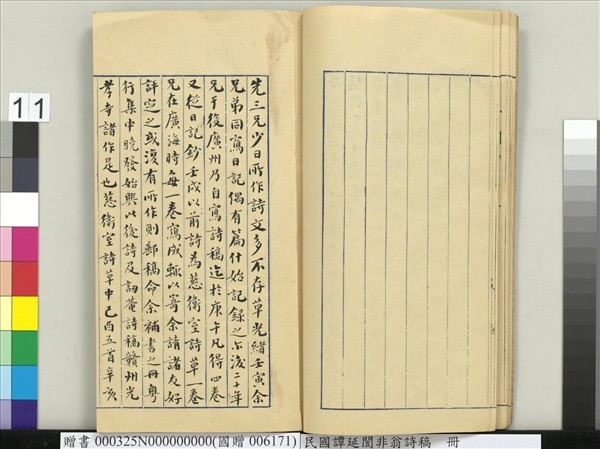 先三兄少日所作詩文多不存草光緒壬寅余
兄弟同寫日記偶有篇什始記錄之亦後二十年
兄于役廣州乃自寫詩稿迄於庚午凡得四卷
又從日記鈔壬戌以前詩為慈衛室詩草一卷
兄在廣海時每一卷寫成輒以寄余請諸友好
評定之或復有所作則郵稿命余補書之冊粵
行集中曉發始興以後詩及訒菴詩稿贛州光
孝寺諸作是也慈衛室詩草中己酉五首辛亥
11
贈書 000325N000000000(國贈 006171) 民國譚延闓非翁詩稿 冊